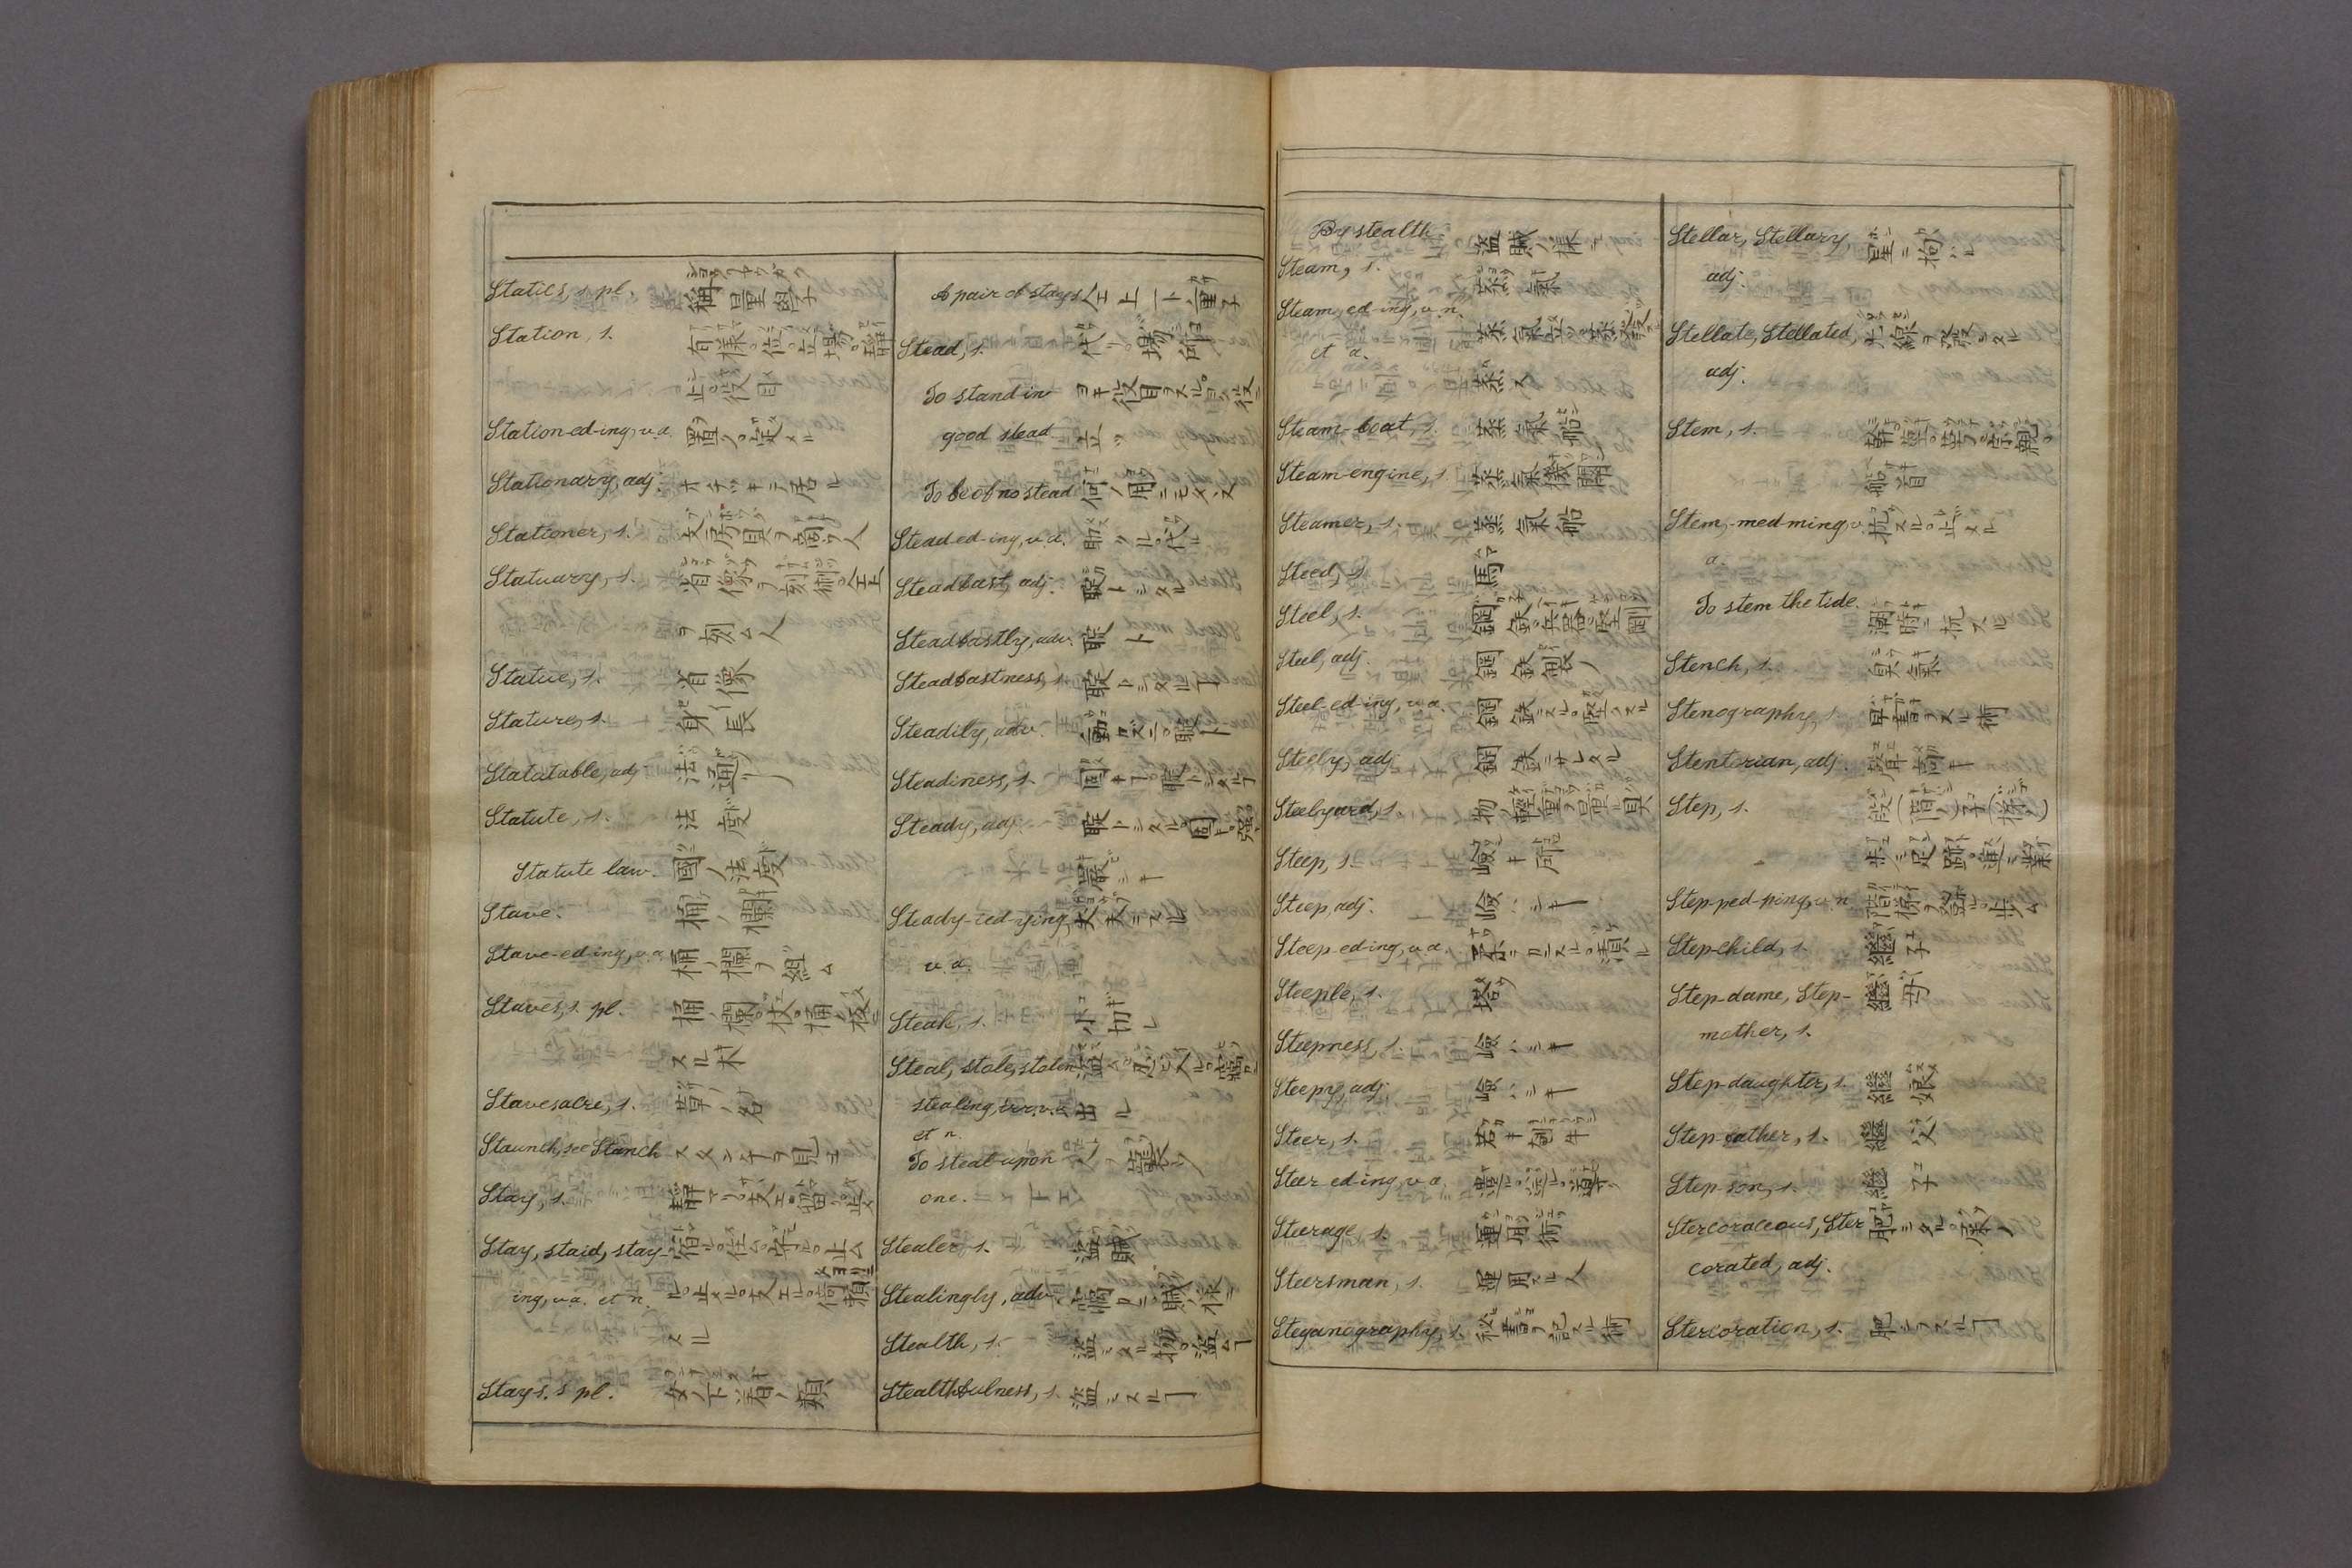 Statics, s. pl. 秤量學
Station, s. 有様。位。立場。
止。役目
Station-ed-ing, v.a. 置ク。定メル
Stationary, adj. オチツキテ居ル
Stationer, s. 文房具ヲ商フ人
Statuary, s. 肖像ヲ刻術。仝上
ヲ刻ム人
Statue, s. 肖像
Stature, s. 身長
Statutable, adj. 法通リノ
Statute, s. 法度
Statute law. 國ノ法度
Stave. 桶ノ欄
Stave-ed-ing, v.a. 桶ノ欄ヲ組ム
Staves, s. pl. 桶ノ欄。杖。桶ノ板ニ
スル木
Stavesacre, s. 草ノ名
Staunch, see Stanch スタンチヲ見ヨ
Stay, s. 静マリ。支エ。留。止
Stay, staid, stay- 宿ル。住ム。守ル。止ム
ing, v.a. et n. ル。止メル。支エル。倚頼
スル
Stays. s. pl. 女ノ下着ノ類
A pair of stays 仝上一ト重子
Stead, s. 代リ。場所
To stand in ヨキ役目ヲスル。ヨク役ニ
good stead 立ツ
To be of no stead 何ノ用ニモタヽヌ
Stead-ed-ing, v.a. 助ケル。代ル
Steadfast, adj. 聢トシタル
Steadfastly, adv. 聢ト
Steadfastness, s. 聢トシタルコト
Steadily, adv. 動カズニ。聢ト
Steadiness, s. 固キコト。聢トシタルコト
Steady, adj. 聢トシタル。固キ。
嚴シキ
Steady-ied-ying, 丈夫ニスル
v.a.
Steak, s. 小切レ
Steal, stole, stolen 盗ム。忍ビ入ル。竊ニ
stealing, irr. v.a. 出ル
et n.
To steal upon 人ヲ襲フ
one.
Stealer, s. 盗賊
Stealingly, adv. 竊カニ。賊ノ様ニ
Stealth, s. 盗ミタル物。盗ムコト
Stealthfulness, s. 盗ミスルコト
By stealth. 盗賊ノ様ニ
Steam, s. 蒸氣
Steam, ed-ing, v.n. 蒸氣立ツ。蒸發
et a. 蒸ス
Steam-boat, s. 蒸氣船
Steam-engine, s. 蒸氣機關
Steamer, s. 蒸氣船
Steed, s. 馬
Steel, s. 鋼鉄。兵器。堅剛
Steel, adj. 鋼鉄製ノ
Steel-ed-ing, v.a. 鋼鉄ニスル。堅クスル
Steely, adj. 鋼鉄ニナレタル
Steelyard, s. 物ノ輕重ヲ量ル具
Steep, s. 嶮キ所
Steep, adj. 嶮ハシキ
Steep-ed-ing, v.a. 柔ラカニスル。漬ル
Steeple, s. 塔
Steepness, s. 嶮ハシキ
Steepy, adj. 嶮ハシキ
Steer, s. 若キ牛
Steer-ed-ing, v.a.
Steerage, s. 運用術
Steersman, s. 運用スル人
Steganography, s. 秘書ヲ記スル術
Stellar, Stellary, 星ニ拘ハル
adj.
Stellate, Stellated, 光線ヲ發スル
adj.
Stem, s. 幹。莖。
船首
Stem,-med-ming, v. 抗スル。止メル
a.
To stem the tide. 潮時ニ抗スル
Stench, s. 臭氣
Stenography, s. 早書ヲスル術
Stentorian, adj. 聲高キ
Step, s. 段
Step-ped-ping, v.n. 階梯ヲ登ル。歩ム
Step-child, s. 繼子
Step-dame, Step- 繼母
mother, s.
Step-daughter, s. 繼娘
Step-father, s. 繼父
Step-son, s. 繼子
Stercoraceous, Ster 肥シタル。糞ノ
corated, adj.
Stercoration, s. 肥シヲスルコト